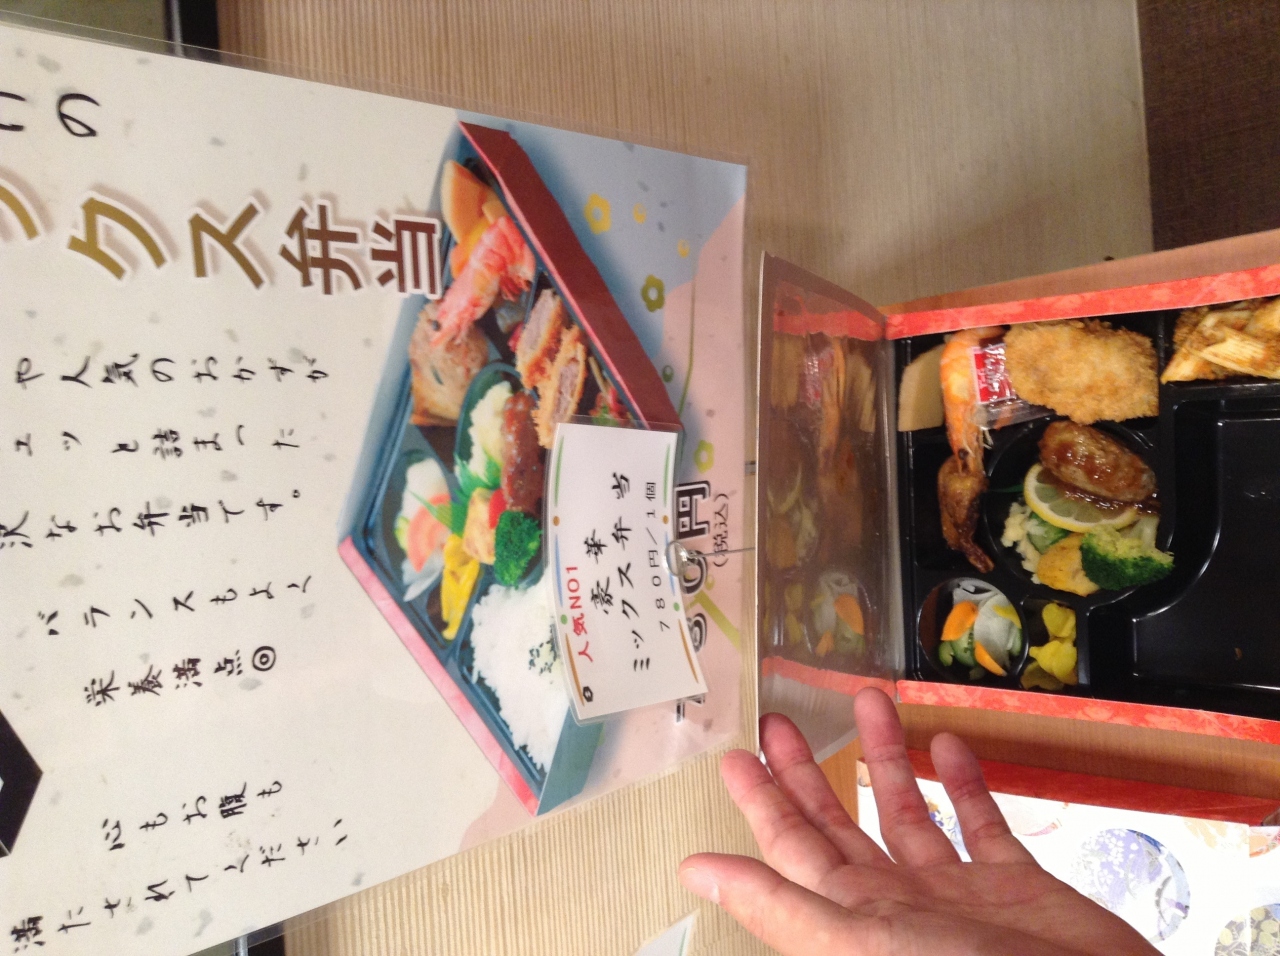 けの
ックス弁当
や人気のおかずが
ュッと詰まった
沢なお弁当です。
バランスもよく
栄養満点◎
心もお腹も
満たされてください
780円
(税込)
人気NO1
豪華
ミックス弁当
７８０円/１個